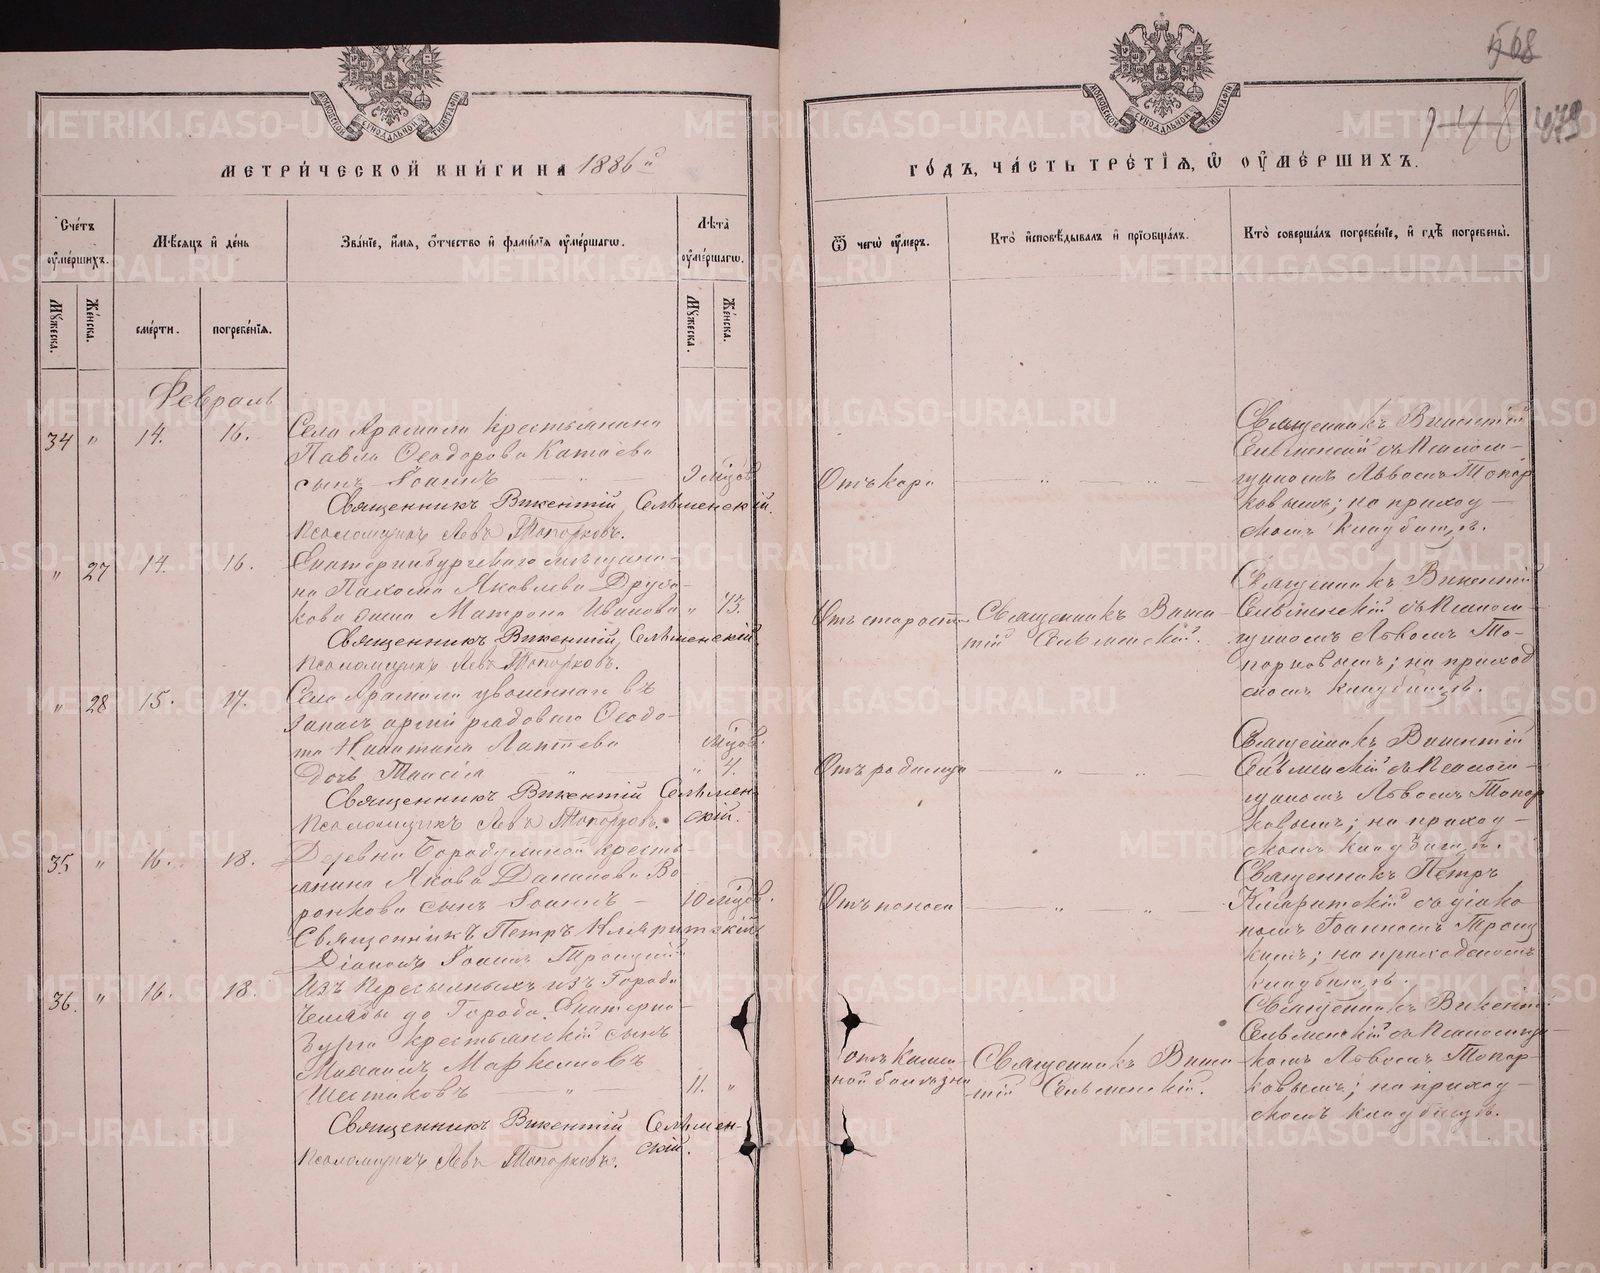 568
148
473
МЕТРИ́ЧЕСКОЙ КНИ́ГИ НА 1886 й
ГО́ДЪ, ЧА́СТЬ ТРЕ́ТІЯ, Ѿ ОУМЕ́РШИХЪ.
Сче́тъ оуме́ршихъ.
Мꙋ́жеска.
Же́нска.
Мѣ́сяцъ и де́нь
сме́рти.
погребе́нїя.
Зва́нїе, и́мя, о́тчество и фами́лїя оуме́ршагѡ.
Лѣ́та оуме́ршагѡ.
Мꙋ́жеска.
Же́нска.
Ѿ чегѡ̀ оу́меръ.
Кто̀ исповѣ́дывалъ и прїобща́лъ.
Кто̀ соверша́лъ погребе́нїе, и гдѣ̀ погребены̀.
Февраль
34 " 14. 16.
Села Арамили крестьянина
Павла Ѳеодорова Катаева
сынъ Іоаннъ
9 мѣсцов
Священникъ Викентій Сельменскій.
Псаломщикъ Левъ Топорковъ.
Отъ кори
Священникъ Викентій
Сельменскій съ Псалом-
щикомъ Львомъ Топор
ковымъ; на приход-
скомъ кладбищѣ.
" 27 14. 16.
Екатеринбургскаго мѣщани-
на Пахома Яковлева
жена Матрона Иванова " 73.
Священникъ Викентій Сельменскій
Псаломщикъ Левъ Топорковъ.
Отъ старости
Священникъ Викен-
тій Сельменскій.
Священникъ Викентій
Сельменскій съ Псалом-
щикомъ Львомъ То-
порковымъ; на приход
скомъ кладбищѣ.
" 28 15. 17.
Села Арамили уволеннаго въ
запасъ арміи рядоваго Ѳеодо-
та Никитина Лаптева
Дочь Таисія
мѣсцов.
" 4.
Священникъ Викентій Сельмен-
скій.
Псаломщикъ Левъ Топорковъ.
Отъ родимца
Священникъ Викентій
Сельменскій съ Псалом-
щикомъ Львомъ Топор
ковымъ; на приход-
скомъ кладбищѣ.
35 " 16. 18.
Деревни Бородулиной кресть-
янина Якова Данилова Во-
ронкова сынъ Іоаннъ
10 мѣсцов.
Священникъ Петръ
Діаконъ Іоаннъ Троицкій
Отъ поноса
Священникъ Петръ
съ діако
номъ Іоанномъ Троиц
кимъ; на приходскомъ
кладбищѣ.
36. " 16. 18.
Изъ пересыльныхъ изъ Города
до Города Екатерин-
бурга крестьянскій сынъ
Михаилъ Маркеловъ
Шестаковъ
11. "
Священникъ Викентій Сельмен-
скій.
Псаломщикъ Левъ Топорковъ.
Священникъ Викен-
тій Сельменскій.
Священникъ Викентій
Сельменскій съ Псаломщи-
комъ Львомъ Топор-
ковымъ; на приход-
скомъ кладбищѣ.
METRIKI.GASO-URAL.RU